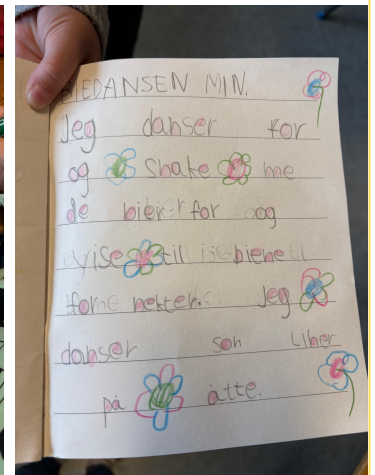 BIEDANSEN MIN.
Jeg danser for
og snake me
de bier for og
vise til biene
for nekter. Jeg
danser son Liber
på åtte.